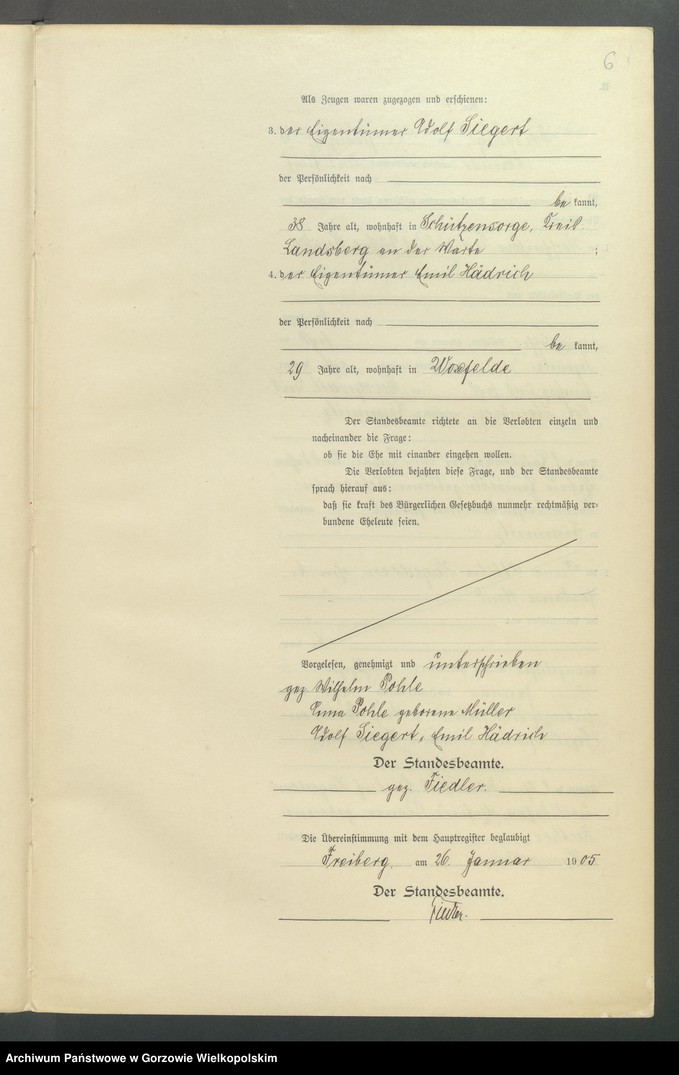 6
Als Zeugen waren zugezogen und erschienen:
3. der Eigentümer Adolf Siegert
der Persönlichkeit nach
be kannt,
38 Jahre alt, wohnhaft in Schützensorge, Kreis
Landsberg an der Warte ;
4. der Eigentümer Emil Hädrich
der Persönlichkeit nach
be kannt,
29 Jahre alt, wohnhaft in Woxfelde
Der Standesbeamte richtete an die Verlobten einzeln und
nacheinander die Frage:
ob sie die Ehe mit einander eingehen wollen.
Die Verlobten bejahten diese Frage, und der Standesbeamte
sprach hierauf aus:
daß sie kraft des Bürgerlichen Gesetzbuchs nunmehr rechtmäßig ver-
bundene Eheleute seien.
Vorgelesen, genehmigt und unterschrieben
gez Wilhelm Pohle
Pohle geborene Müller
Adolf Siegert, Emil Hädrich
Der Standesbeamte.
gez. Fiedler.
Die Übereinstimmung mit dem Hauptregister beglaubigt
Freiberg, am 26. Januar 1905
Der Standesbeamte.
Fiedler.
Archiwum Państwowe w Gorzowie Wielkopolskim